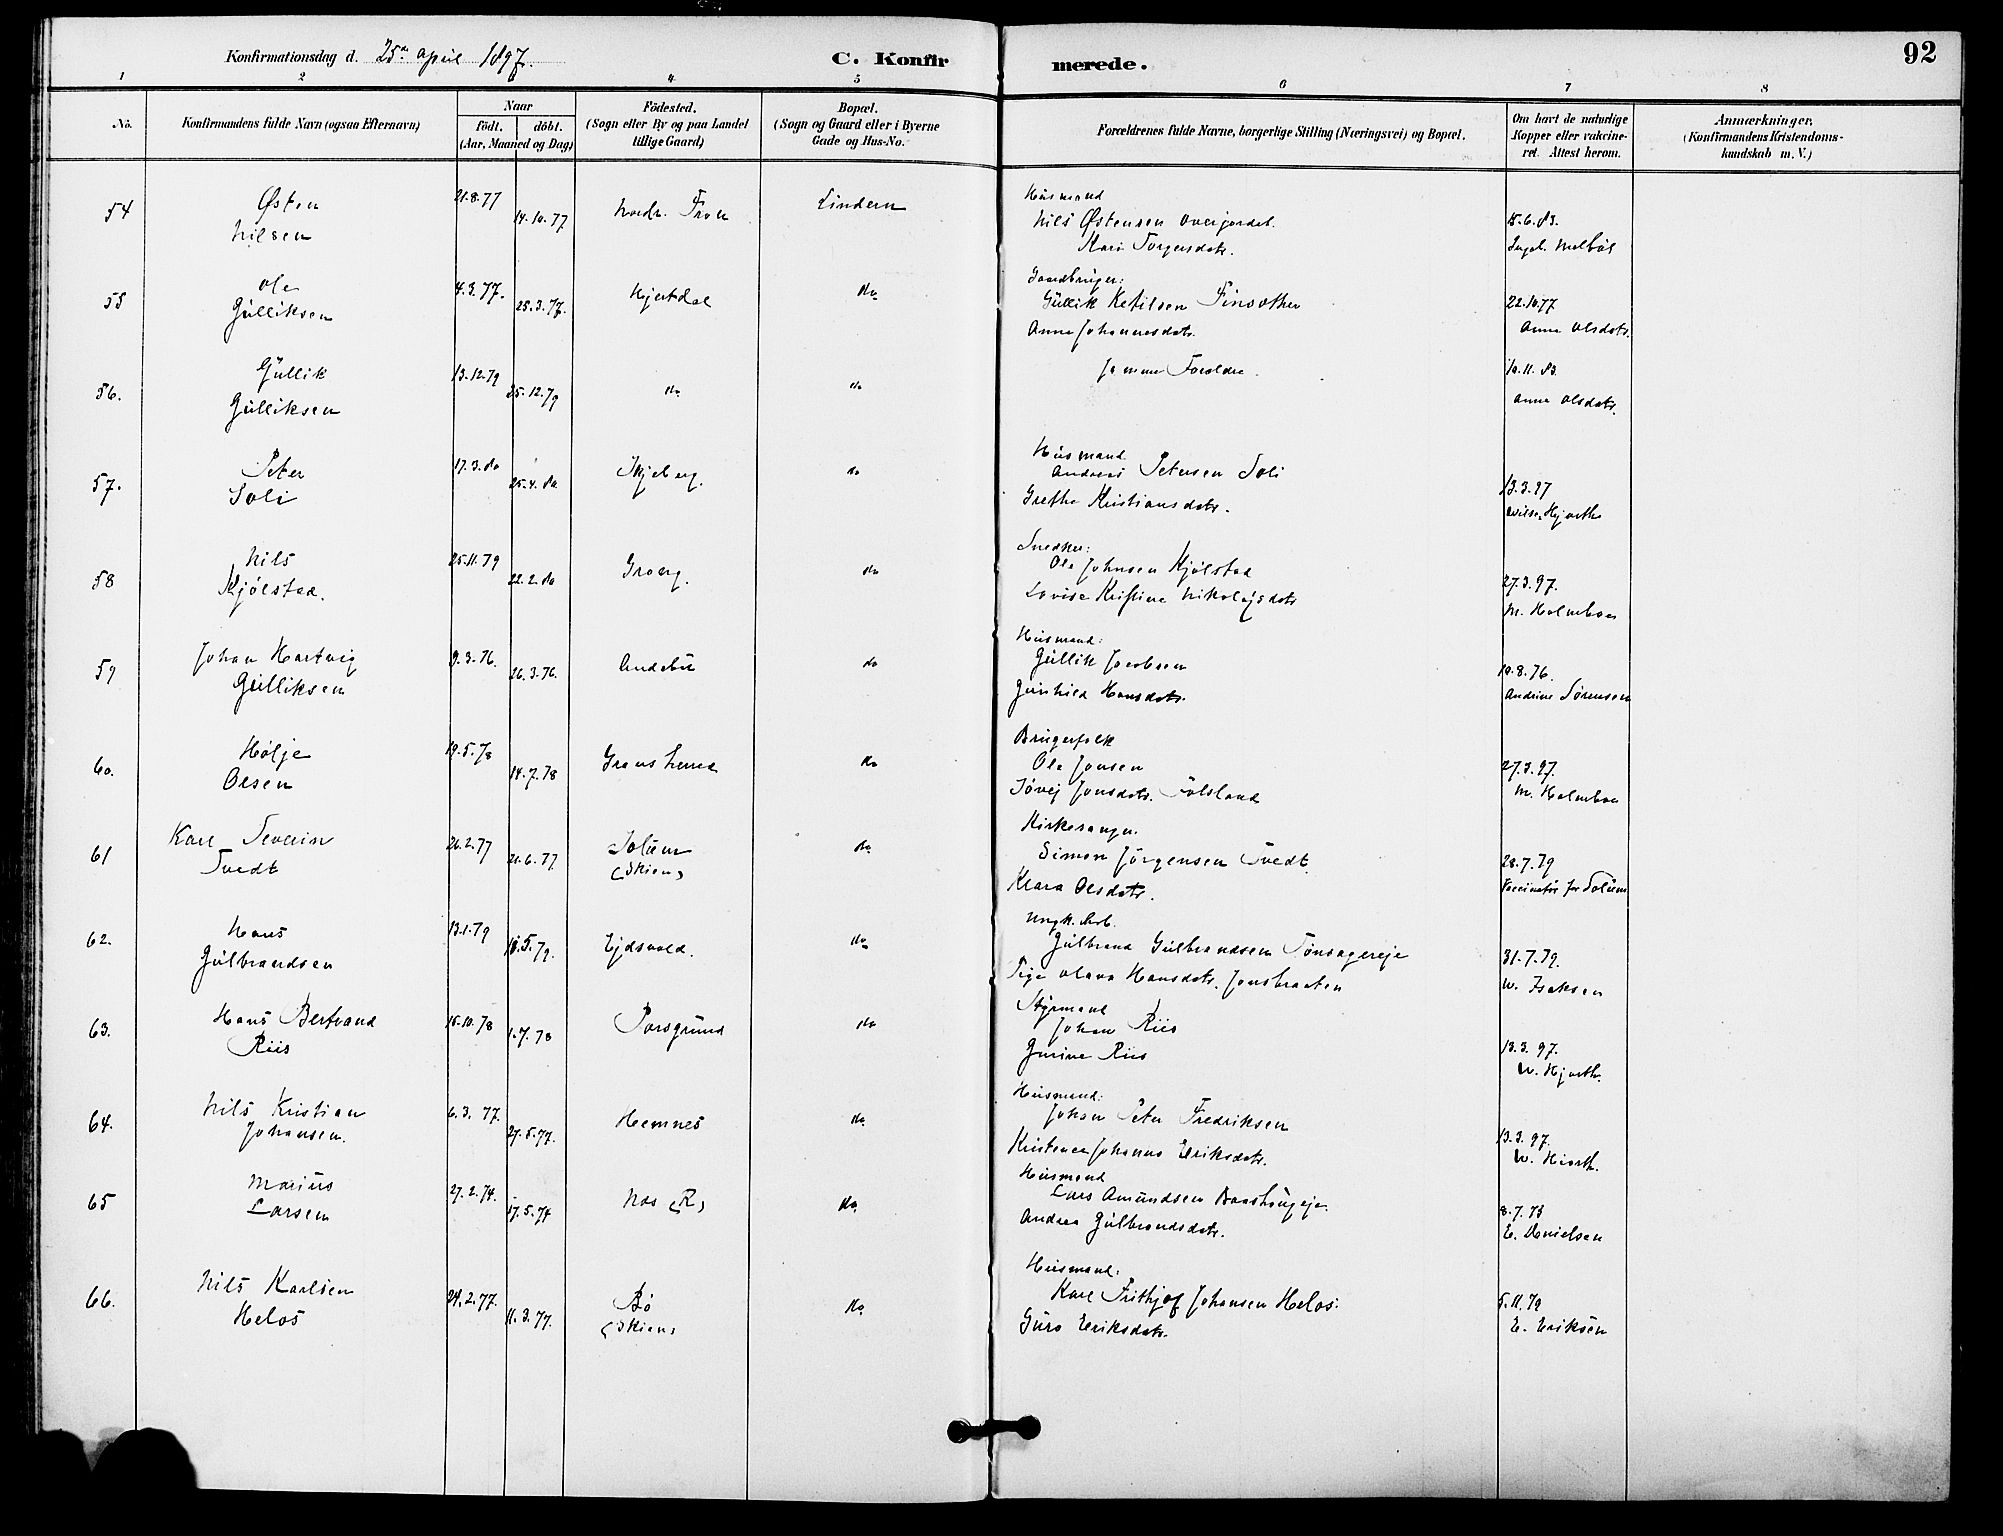 Konfirmationsdag d. 25de april 1897.
C. Konfir
merede.
92
1 2 4 5 6 7 8
No.
Konfirmandens fulde Navn (ogsaa Efternavn)
Naar
födt. döbt.
(Aar, Maaned og Dag)
Födested.
(Sogn eller By og paa Landet
tillige Gaard)
Bopæl.
(Sogn og Gaard eller i Byerne
Gade og Hus-No.
Forældrenes fulde Navne, borgerlige Stilling (Næringsvei) og Bopæl.
Om havt de naturlige
Kopper eller vakcine-
ret. Attest herom.
Anmærkninger,
(Konfirmandens Kristendoms-
kundskab m. V.)
54 Østen Nilsen 21.8.77 14.10.77 Nordr. Fron Lindern
Husmand
Nils Østensen Overjordet.
Mari Torgersdatr.
15.6.83.
Ingeb. Melbøl
55 Ole Gulliksen 4.3.77. 25.3.77. Hjertdal do
Gaardbruger:
Gullik Ketilsen
Anne Johannesdatr.
22.10.77
Anne Olsdatr.
56. Gullik Gulliksen 13.12.79 25.12.79 do do
Samme Forældre
10.11.83.
Anne Olsdatr.
57. Peter Soli 17.3.80 25.4.80 Skjeberg. do
Husmand
Andreas Petersen Soli
Grethe Kristiansdatr.
13.3.97
Wilh. Hjorth
58 Nils Kjölstad. 25.11.79 22.2.80 Grong. do
Snedker:
Ole Johnsen Kjölstad
Lovise Kristine Nikolajsdatr
27.3.97.
M. Holmboe
59 Johan Hartvig Gulliksen 9.3.76. 26.3.76. Andebu do
Husmand:
Gullik Jacobsen
Gunhild Hansdatr.
10.8.76.
Andrine Sörensen
60. Hölje Olsen 19.5.78 14.7.78 Gransherred do
Brugerfolk
Ole Jonsen
Jövej Jonsdatr.
27.3.97.
M. Holmboe
61 Karl Severin Tvedt 26.2.77 21.6.77 Solum (Skien) do
Kirkesanger.
Simon Jörgensen Tvedt.
Klara Olsdatr.
28.7.79
Vaccinatör for Solum
62. Hans Gulbrandsen 13.1.79 18.5.79. Ejdsvold. do
Ungk. Arb.
Gulbrand Gulbrandsen
Pige Olava Hansdatr. Jonsbraaten
31.7.79.
W. Isaksen
63. Hans Bertrand Riis 15.10.78 1.7.78 Porsgrund do
Styrmand
Johan Riis
Gurine Riis
13.3.97.
W. Hjorth.
64. Nils Kristian Johansen. 6.3.77. 27.5.77. Hemnes do
Husmand:
Johan Peter Fredriksen
Kristence Johanna Eriksdatr.
13.3.97.
W. Hiorth.
65 Marius Larsen 27.2.74. 17.5.74 Nes (R) do
Husmand
Lars Amundsen
Andrea Gulbrandsdatr.
8.7.75
E. Danielsen
66. Nils Karlsen Helos 24.2.77. 11.3.77. Bö (Skien) do
Husmand:
Karl Frithjof Johansen Helos.
Guro Eriksdatr.
5.11.79
E. Eriksen